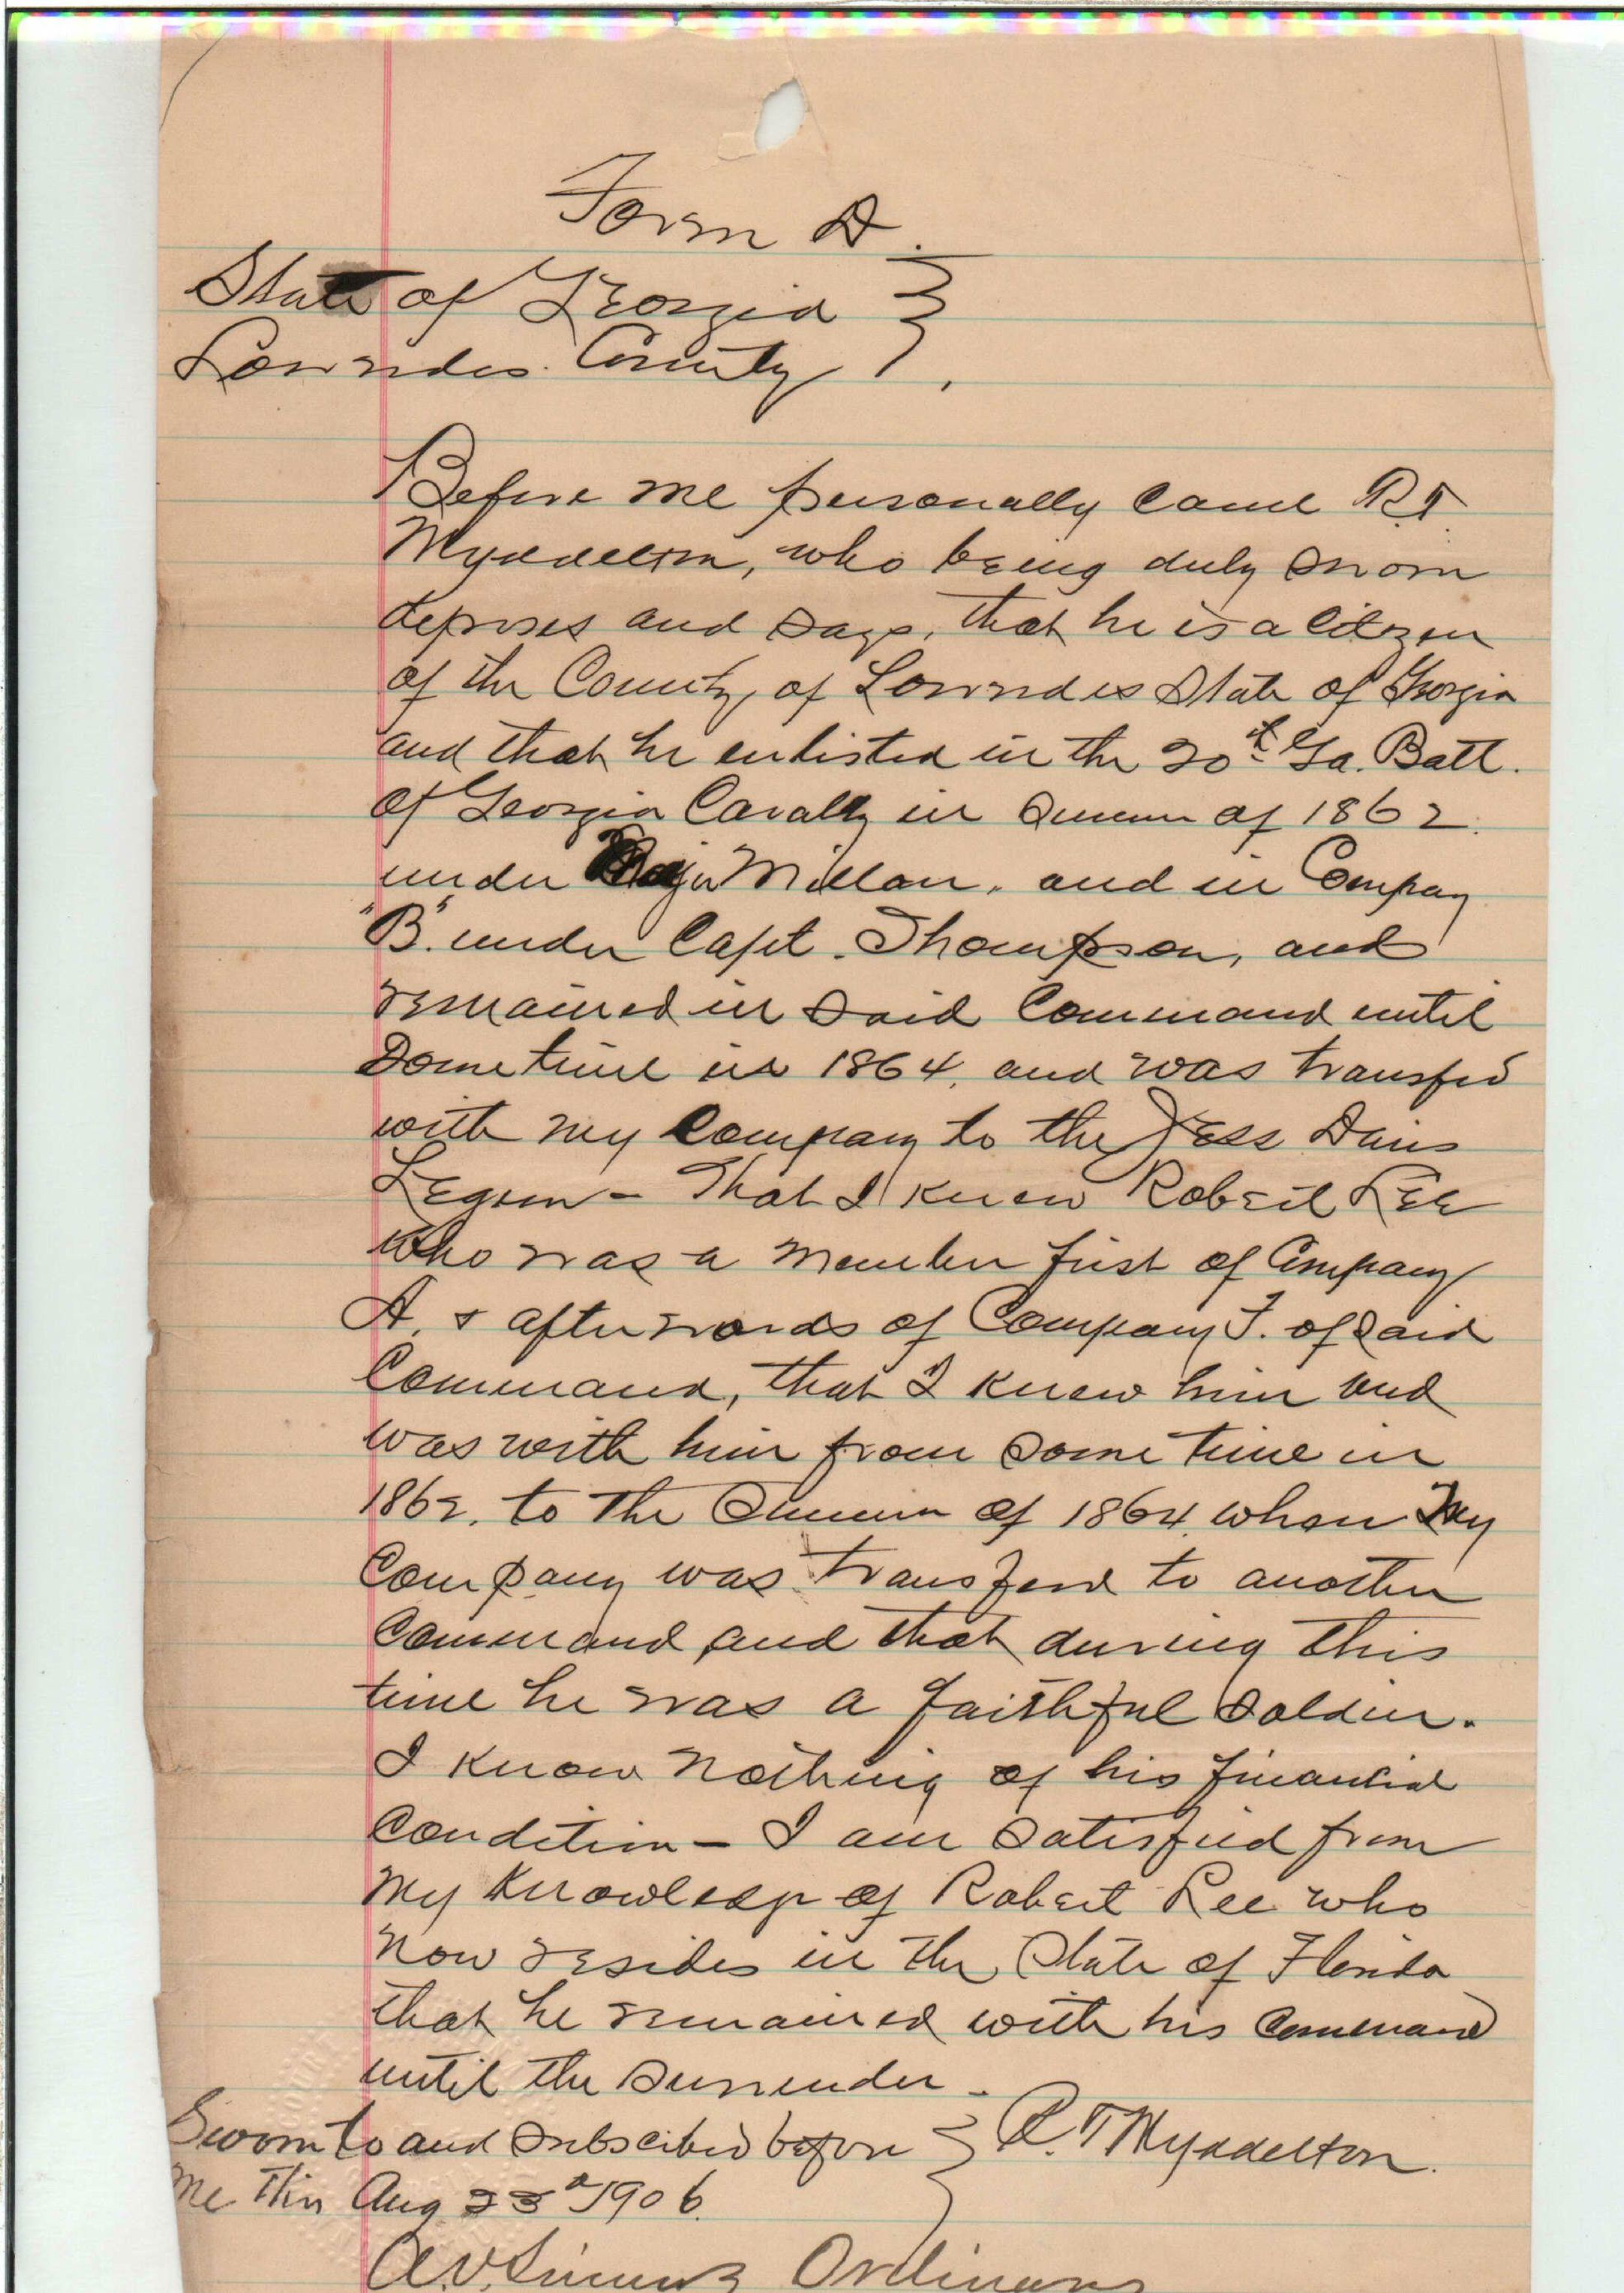 Form D.
State of Georgia
Lowndes County.
Before me personally came R.T.
Myddelton, who being duly sworn
deposes and says, that he is a Citizen
of the County of Lowndes State of Georgia
and that he enlisted in the 20th Ga. Batt.
of Georgia Cavalry in Summer of 1862
under Major Millan, and in Company
"B." under Capt. Thompson, and
remained in said Command until
Sometime in 1864, and was transfed
with my Company to the Jeff Davis
Legion - That I knew Robert Lee
who was a member first of Company
A, & afterwards of Company F. of said
Command, that I knew him and
was with him from some time in
1862, to the Summer of 1864 when my
Company was transferd to another
Command, and that during this
time he was a faithful soldier.
I know nothing of his financial
condition - I am satisfied from
my knowledge of Robert Lee who
now resides in the State of Florida
that he remained with his Command
until the surrender -
Sworn to and subscribed before R.T Myddelton.
me this Aug 23d 1906.
A.V. Simms Ordinary